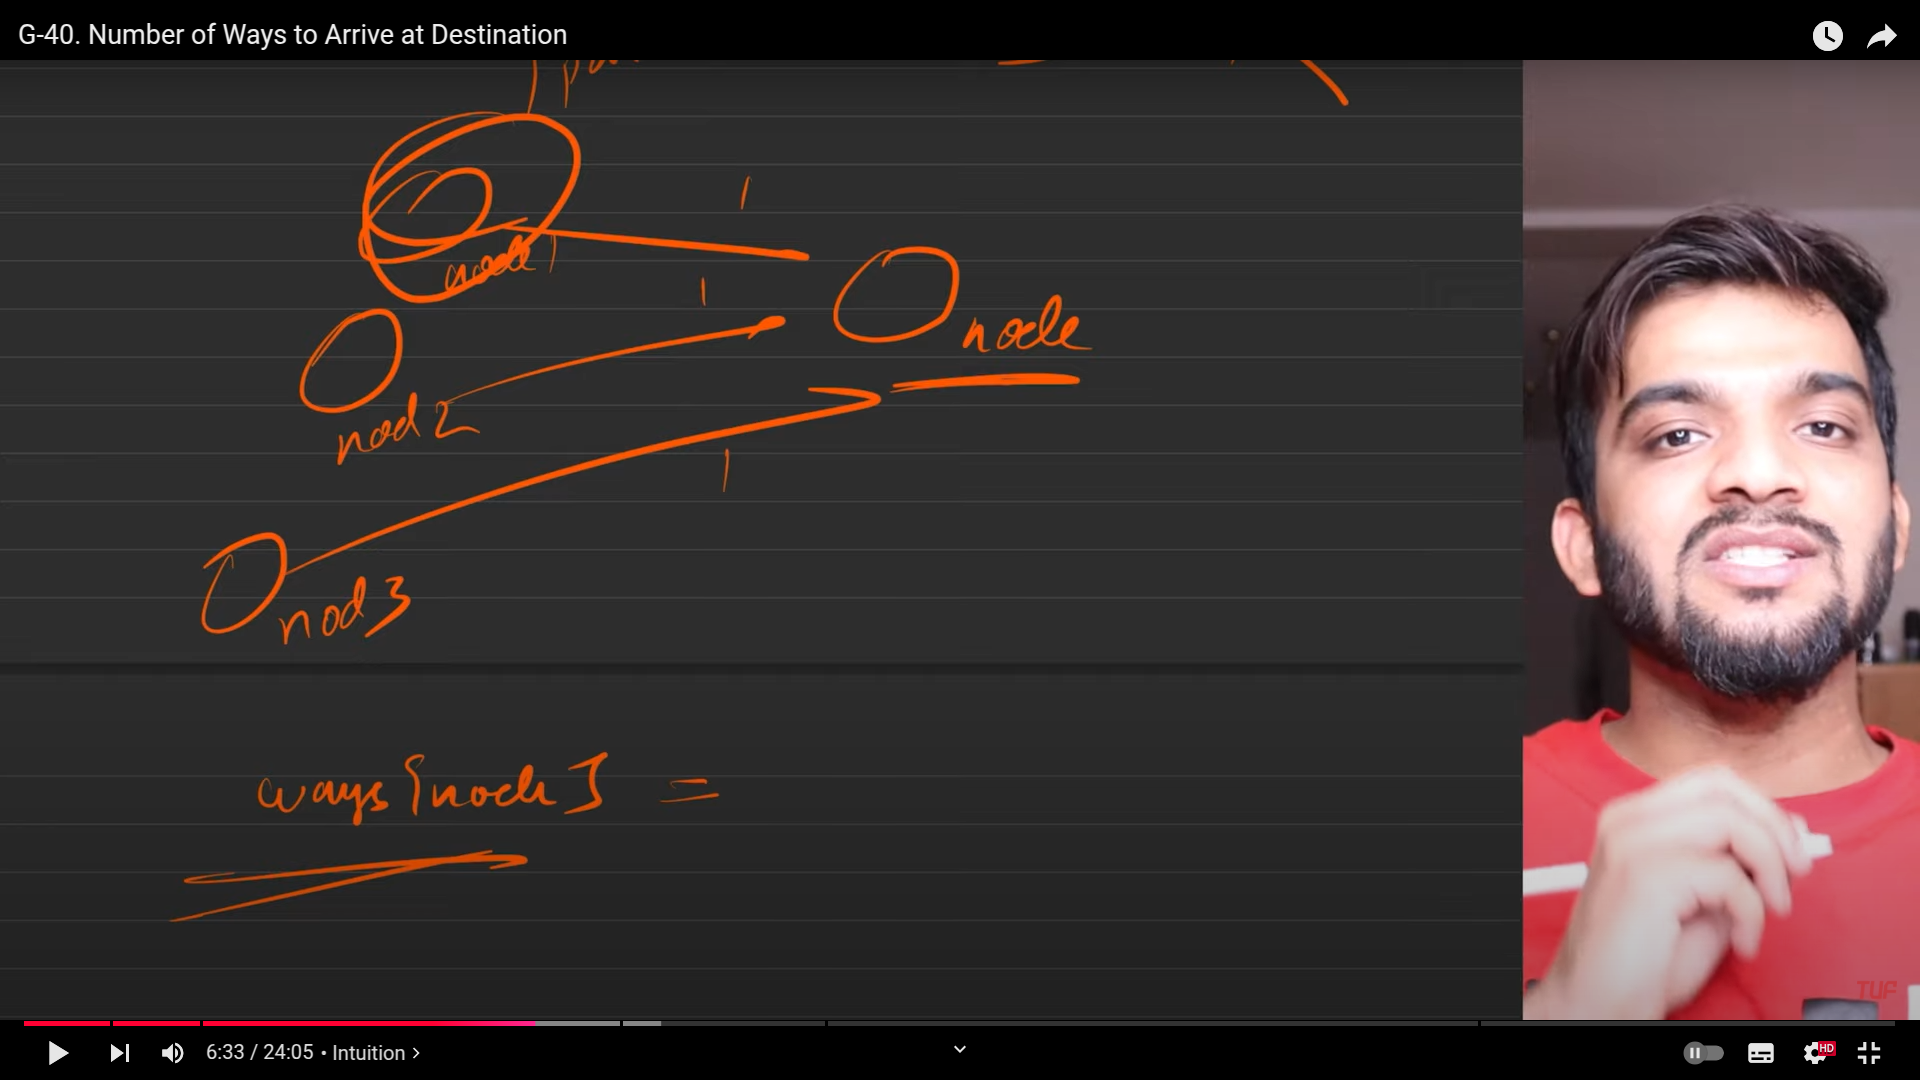 G-40. Number of Ways to Arrive at Destination
1
node1
1
node
nod2
1
nod3
ways[node] =
TUF
6:33 / 24:05 • Intuition >
HD